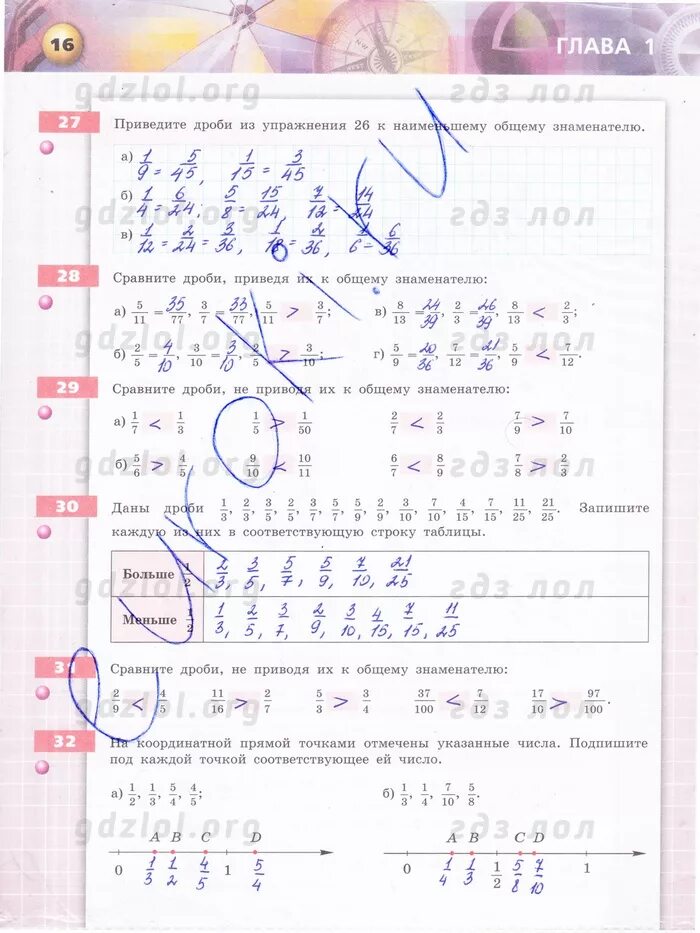 16 ГЛАВА 1
gdzlol.org гдз лол
27 Приведите дроби из упражнения 26 к наименьшему общему знаменателю.
а) 1/9 = 5/45, 1/15 = 3/45
б) 1/4 = 6/24, 5/8 = 15/24, 7/12 = 14/24
gdzlol.org гдз лол
в) 1/12 = 2/24 = 3/36, 1/18 = 2/36, 1/6 = 6/36
28 Сравните дроби, приведя их к общему знаменателю:
а) 5/11 = 35/77, 3/7 = 33/77, 5/11 > 3/7; в) 8/13 = 24/39, 2/3 = 26/39, 8/13 < 2/3;
gdzlol.org гдз лол
б) 2/5 = 4/10, 3/10 = 3/10, 2/5 > 3/10; г) 5/9 = 20/36, 7/12 = 21/36, 5/9 < 7/12.
29 Сравните дроби, не приводя их к общему знаменателю:
а) 1/7 < 1/3 1/5 > 1/50 2/7 < 2/3 7/9 > 7/10
б) 5/6 > 4/5 9/10 < 10/11 6/7 < 8/9 7/8 > 2/3
gdzlol.org гдз лол
30 Даны дроби 1/3, 2/3, 3/5, 2/5, 3/7, 5/7, 5/9, 2/9, 3/10, 7/10, 4/15, 7/15, 11/25, 21/25. Запишите
каждую из них в соответствующую строку таблицы.
Больше 1/2 2/3, 3/5, 5/7, 5/9, 7/10, 21/25
gdzlol.org гдз лол
Меньше 1/2 1/3, 2/5, 3/7, 2/9, 3/10, 4/15, 7/15, 11/25
31 Сравните дроби, не приводя их к общему знаменателю:
2/9 < 4/5 11/16 > 2/7 5/3 > 3/4 37/100 < 7/12 17/10 > 97/100.
gdzlol.org гдз лол
32 На координатной прямой точками отмечены указанные числа. Подпишите
под каждой точкой соответствующее ей число.
а) 1/2, 1/3, 5/4, 4/5; б) 1/3, 1/4, 7/10, 5/8.
gdzlol.org гдз лол
A B C D A B C D
0 1/3 1/2 4/5 1 5/4 0 1/4 1/3 1/2 5/8 7/10 1